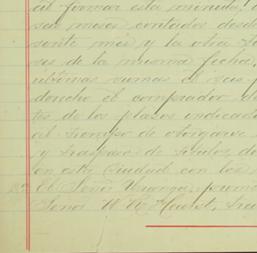 al formar esta minuta, 
seis meses contados desde
sente mes y la otra
ses de la misma fecha,
ultimas sumas el seis p
derecho el comprador de
tes de los plazos indicado
al tiempo de otorgarse
y traspaso de títulos de
en esta Ciudad con los
El Señor Uranga, 
Señor W. R. Hearst,